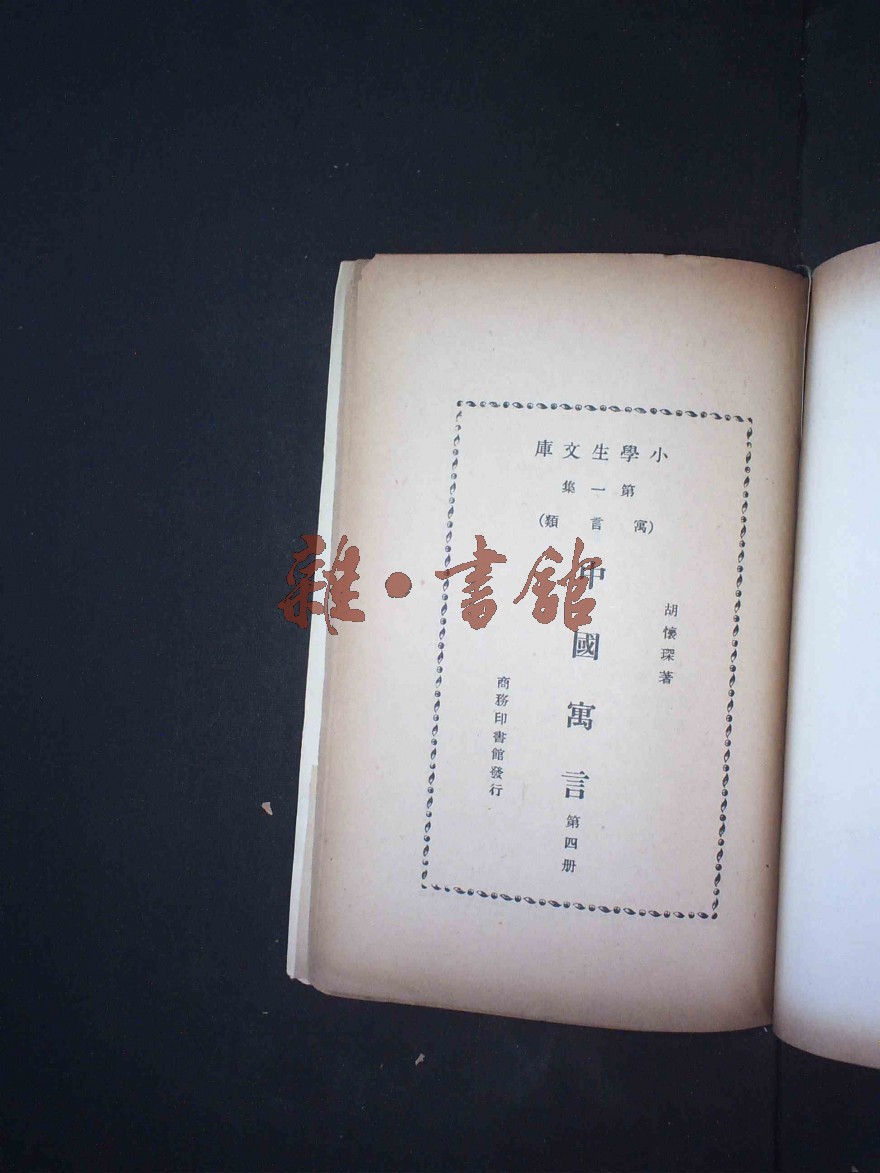 小學生文庫
第一集
(寓言類)
胡懷琛著
中國寓言 第四册
商務印書館發行
雜·書館